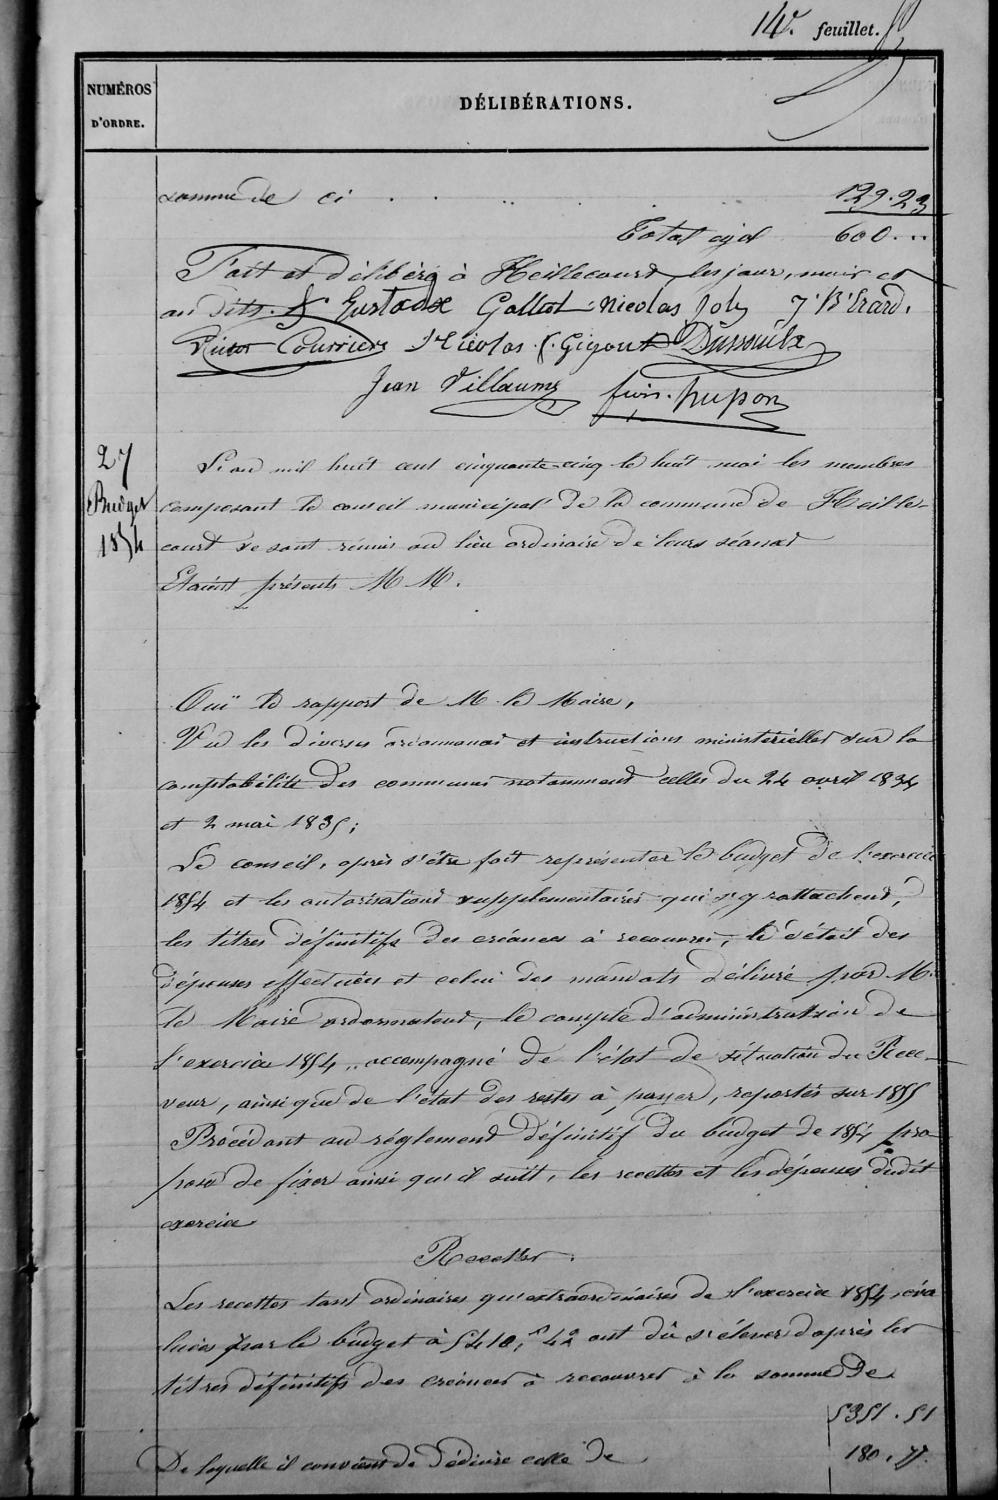 14e. feuillet.
NUMÉROS
D'ORDRE.
DÉLIBÉRATIONS.
somme de ci . . . . . 129.23
Total égal 600...
Fait et délibéré à Heillecourt les jour, mois et
an dits. Gustave Gallot Nicolas Joly J. B. Erard.
Victor Courrier Nicolas f. Gigout
Jean Villaume
27
Budget
1854
L'an mil huit cent cinquante-cinq le huit mai les membres
composant le conseil municipal de la commune de Heille-
court se sont réunis au lieu ordinaire de leurs séances
Etaient présents M M.
Ouï le rapport de M. le Maire,
Vu les diverses ordonnances et instructions ministérielles sur la
comptabilité des communes notamment celles du 24 avril 1834
et 2 mai 1835;
Le conseil, après s'être fait représenter le budget de l'exercice
1854 et les autorisations supplémentaires qui s'y rattachent,
les titres définitifs des créances à recouvrer, le détail des
dépenses effectuées et celui des mandats délivré par M.
le Maire ordonnateur, le compte d'administration de
l'exercice 1854, accompagné de l'état de situation du Rece-
veur, ainsi que de l'état des restes à payer, reportés sur 1855
Procédant au réglement définitif du budget de 1854 pro-
pose de fixer ainsi qu'il suit, les recettes et les dépenses dudit
exercice
Recettes.
Les recettes tant ordinaires qu'extraordinaires de l'exercice 1854, éva
luées par le budget à 5410, f 42 ont dû s'élever d'après les
titres définitifs des créances à recouvrer à la somme de
5351.51
De laquelle il convient de déduire celle de 180.77.